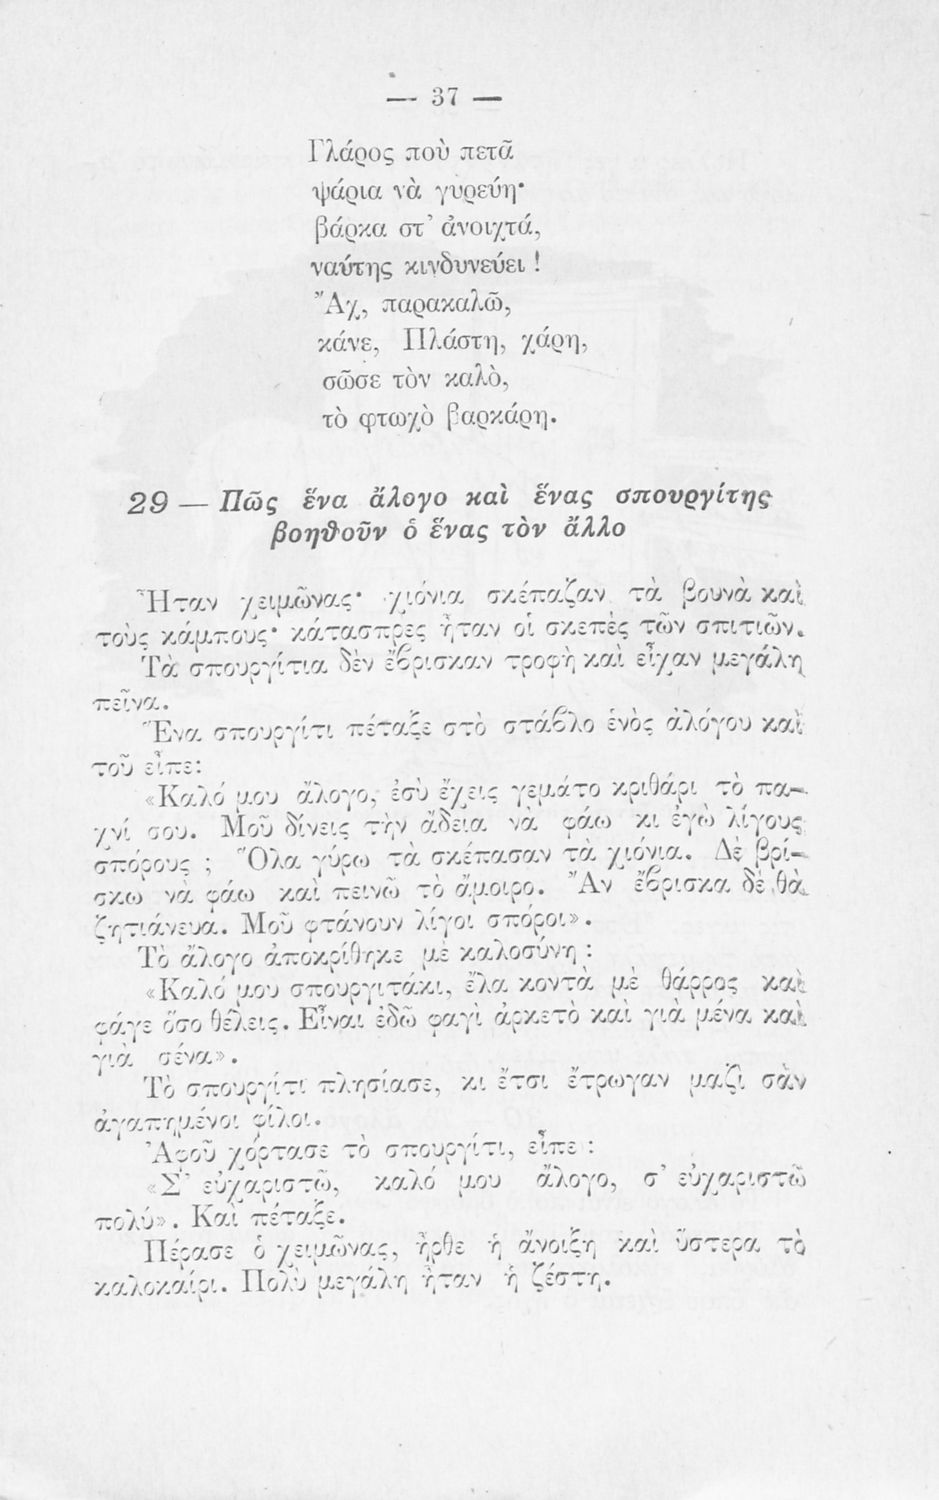 — 37 —
Γλάρος ποὺ πετᾶ
ψάρια νὰ γυρεύη·
βάρκα στ᾿ ἀνοιχτά,
ναύτης κινδυνεύει !
Ἄχ, παρακαλῶ,
κάνε, Πλάστη, χάρη,
σῶσε τὸν καλὸ,
τὸ φτωχὸ βαρκάρη.
29 — Πῶς ἕνα ἄλογο καὶ ἕνας σπουργίτης
βοηθοῦν ὁ ἕνας τὸν ἄλλο
Ἦταν χειμῶνας· χιόνια σκέπαζαν τὰ βουνὰ καὶ
τοὺς κάμπους· κάτασπρες ἦταν οἱ σκεπὲς τῶν σπιτιῶν.
Τὰ σπουργίτια δὲν ἔβρισκαν τροφὴ καὶ εἶχαν μεγάλη
πεῖνα.
Ἕνα σπουργίτι πέταξε στὸ στάβλο ἑνὸς ἀλόγου καὶ
τοῦ εἶπε:
«Καλό μου ἄλογο, ἐσὺ ἔχεις γεμάτο κριθάρι τὸ πα-
χνί σου. Μοῦ δίνεις τὴν ἄδεια νὰ φάω κι ἐγὼ λίγους
σπόρους ; Ὅλα γύρω τὰ σκέπασαν τὰ χιόνια. Δὲ βρί-
σκω νὰ φάω καὶ πεινῶ τὸ ἄμοιρο. Ἂν ἔβρισκα δὲ θὰ
ζητιάνευα. Μοῦ φτάνουν λίγοι σπόροι».
Τὸ ἄλογο ἀποκρίθηκε μὲ καλοσύνη :
«Καλό μου σπουργιτάκι, ἔλα κοντὰ μὲ θάρρος καὶ
φάγε ὅσο θέλεις. Εἶναι ἐδῶ φαγὶ ἀρκετὸ καὶ γιὰ μένα καὶ
γιὰ σένα».
Τὸ σπουργίτι πλησίασε, κι ἔτσι ἔτρωγαν μαζὶ σὰν
ἀγαπημένοι φίλοι.
Ἀφοῦ χόρτασε τὸ σπουργίτι, εἶπε :
«Σ᾿ εὐχαριστῶ, καλό μου ἄλογο, σ᾿ εὐχαριστῶ
πολύ». Καὶ πέταξε.
Πέρασε ὁ χειμῶνας, ἦρθε ἡ ἄνοιξη καὶ ὕστερα τὸ
καλοκαίρι. Πολὺ μεγάλη ἦταν ἡ ζέστη.